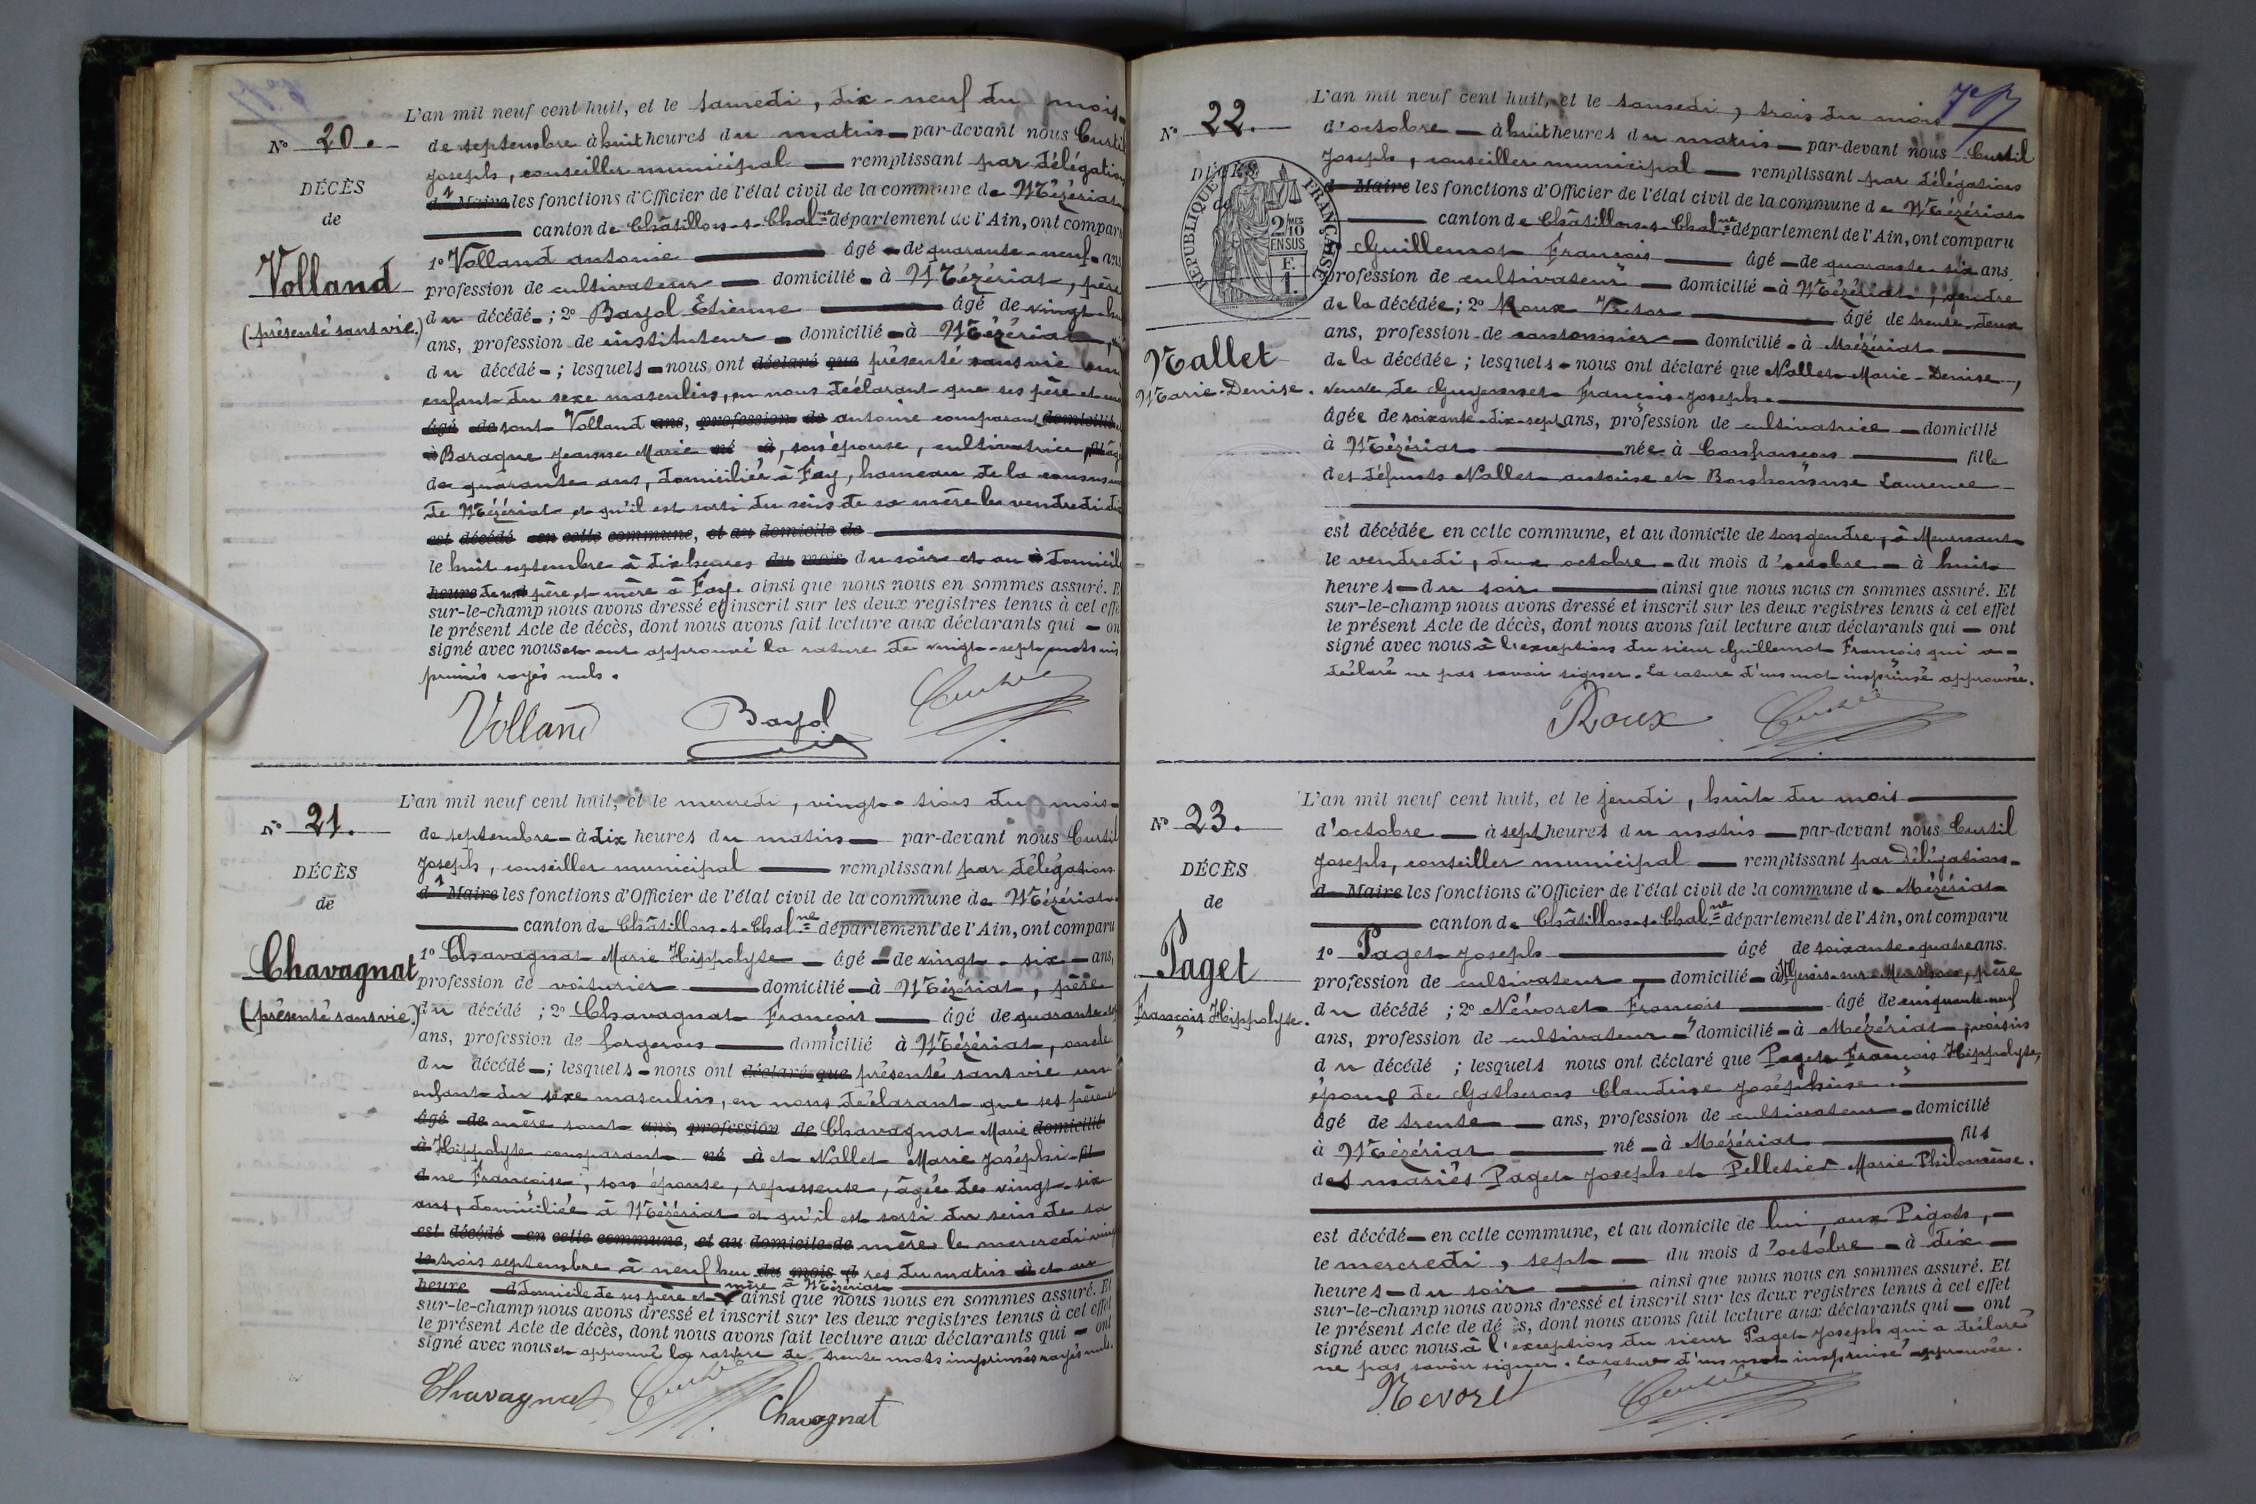 N° 20.
DÉCÈS
de
Volland
(présenté sans vie.)
L'an mil neuf cent huit, et le samedi, dix-neuf du mois
de septembre à huit heures du matin par-devant nous Curtil
Joseph, conseiller municipal remplissant par délégation
d' Maire les fonctions d'Officier de l'état civil de la commune de Mézériat
canton de Châtillon-s-Chalne département de l'Ain, ont comparu
1° Volland antoine âgé de quarante-neuf ans
profession de cultivateur domicilié à Mézériat, père
du décédé; 2° Bayol Etienne âgé de vingt
ans, profession de instituteur domicilié à Mézériat,
du décédé; lesquels nous ont déclaré que présenté sans vie un
enfant du sexe masculin, en nous déclarant que ses père et
âgé de sont Volland ans, profession de antoine comparant domicilié
à Baraque Jeanne Marie né à, son épouse, cultivatrice,
de quarante ans, domiciliés à Fay, hameau de la commune
de Mézériat et qu'il est sorti du sein de sa mère le vendredi dix
est décédé en cette commune, et au domicile de
le huit septembre à dix heures du mois du soir et au à domicile
heure de ses père et mère à Fay. ainsi que nous nous en sommes assuré. Et
sur-le-champ nous avons dressé et inscrit sur les deux registres tenus à cet effet
le présent Acte de décès, dont nous avons fait lecture aux déclarants qui ont
signé avec nous et ont approuvé la rature de vingt-sept mots im
primés rayés nuls.
Volland Bayol Curtil
N° 21.
DÉCÈS
de
Chavagnat
(présenté sans vie.)
L'an mil neuf cent huit, et le mercredi, vingt-trois du mois
de septembre à dix heures du matin par-devant nous Curtil
Joseph, conseiller municipal remplissant par délégation
d' Maire les fonctions d'Officier de l'état civil de la commune de Mézériat
canton de Châtillon-s-Chalne département de l'Ain, ont comparu
1° Chavagnat Marie Hippolyte âgé de vingt-six ans,
profession de voiturier domicilié à Mézériat, père
du décédé; 2° Chavagnat François âgé de quarante
ans, profession de forgeron domicilié à Mézériat, oncle
du décédé; lesquels nous ont déclaré que présenté sans vie un
enfant du sexe masculin, en nous déclarant que ses père et
âgé de mère sont ans, profession de Chavagnat Marie domicilié
à Hippolyte comparant né à et Nallet Marie Joséphi fil
d ne Françoise, son épouse, repasseuse, âgée de vingt-six
ans, domiciliée à Mézériat et qu'il est sorti du sein de sa
est décédé en cette commune, et au domicile de mère le mercredi vingt
le trois septembre à neuf heu du mois d res du matin à et au
heure d domicile de ses père et mère à Mézériat ainsi que nous nous en sommes assuré. Et
sur-le-champ nous avons dressé et inscrit sur les deux registres tenus à cet effet
le présent Acte de décès, dont nous avons fait lecture aux déclarants qui ont
signé avec nous et approuvé la rature de trente mots imprimés rayés nuls.
Chavagnat Curtil Chavagnat
N° 22.
DÉCÈS
de
RÉPUBLIQUE FRANÇAISE
2/10 EN SUS
Nallet
Marie-Denise.
L'an mil neuf cent huit, et le samedi, trois du mois
d'octobre à huit heures du matin par-devant nous Curtil
Joseph, conseiller municipal remplissant par délégation
d Maire les fonctions d'Officier de l'état civil de la commune de Mézériat
canton de Châtillon-s-Chalne département de l'Ain, ont comparu
1° Guillemot François âgé de quarante-six ans
profession de cultivateur domicilié à Mézériat, gendre
de la décédée; 2° Roux Victor âgé de trente-deux
ans, profession de cantonnier domicilié à Mézériat
de la décédée; lesquels nous ont déclaré que Nallet Marie-Denise,
veuve de Guyennet François-Joseph.
âgée de soixante-dix-sept ans, profession de cultivatrice domicilié
à Mézériat née à Confrançon fille
des défunts Nallet antoine et Laurence
est décédée en cette commune, et au domicile de son gendre, à
le vendredi, deux octobre du mois d'octobre à huit
heures du soir ainsi que nous nous en sommes assuré. Et
sur-le-champ nous avons dressé et inscrit sur les deux registres tenus à cet effet
le présent Acte de décès, dont nous avons fait lecture aux déclarants qui ont
signé avec nous à l'exception du sieur Guillemot François qui a
déclaré ne pas savoir signer. La rature d'un mot imprimé approuvée.
Roux Curtil
N° 23.
DÉCÈS
de
Paget
François Hippolyte.
L'an mil neuf cent huit, et le jeudi, huit du mois
d'octobre à sept heures du matin par-devant nous Curtil
Joseph, conseiller municipal remplissant par délégation
d Maire les fonctions d'Officier de l'état civil de la commune de Mézériat
canton de Châtillon-s-Chalne département de l'Ain, ont comparu
1° Paget Joseph âgé de soixante-quatre ans.
profession de cultivateur, domicilié à St Genis-sur-Menthon, père
du décédé; 2° Névoret François âgé de cinquante-neuf
ans, profession de cultivateur domicilié à Mézériat, voisin
du décédé; lesquels nous ont déclaré que Paget François Hippolyte,
époux de Gatheron Claudine Joséphine.
âgé de trente ans, profession de cultivateur domicilié
à Mézériat né à Mézériat fils
des mariés Paget Joseph et Pelletier Marie Philomène.
est décédé en cette commune, et au domicile de lui, aux Pigots,
le mercredi, sept du mois d'octobre à dix
heures du soir ainsi que nous nous en sommes assuré. Et
sur-le-champ nous avons dressé et inscrit sur les deux registres tenus à cet effet
le présent Acte de dé ès, dont nous avons fait lecture aux déclarants qui ont
signé avec nous à l'exception du sieur Paget Joseph qui a déclaré
ne pas savoir signer. La rature d'un mot imprimé approuvée.
Nevoret Curtil